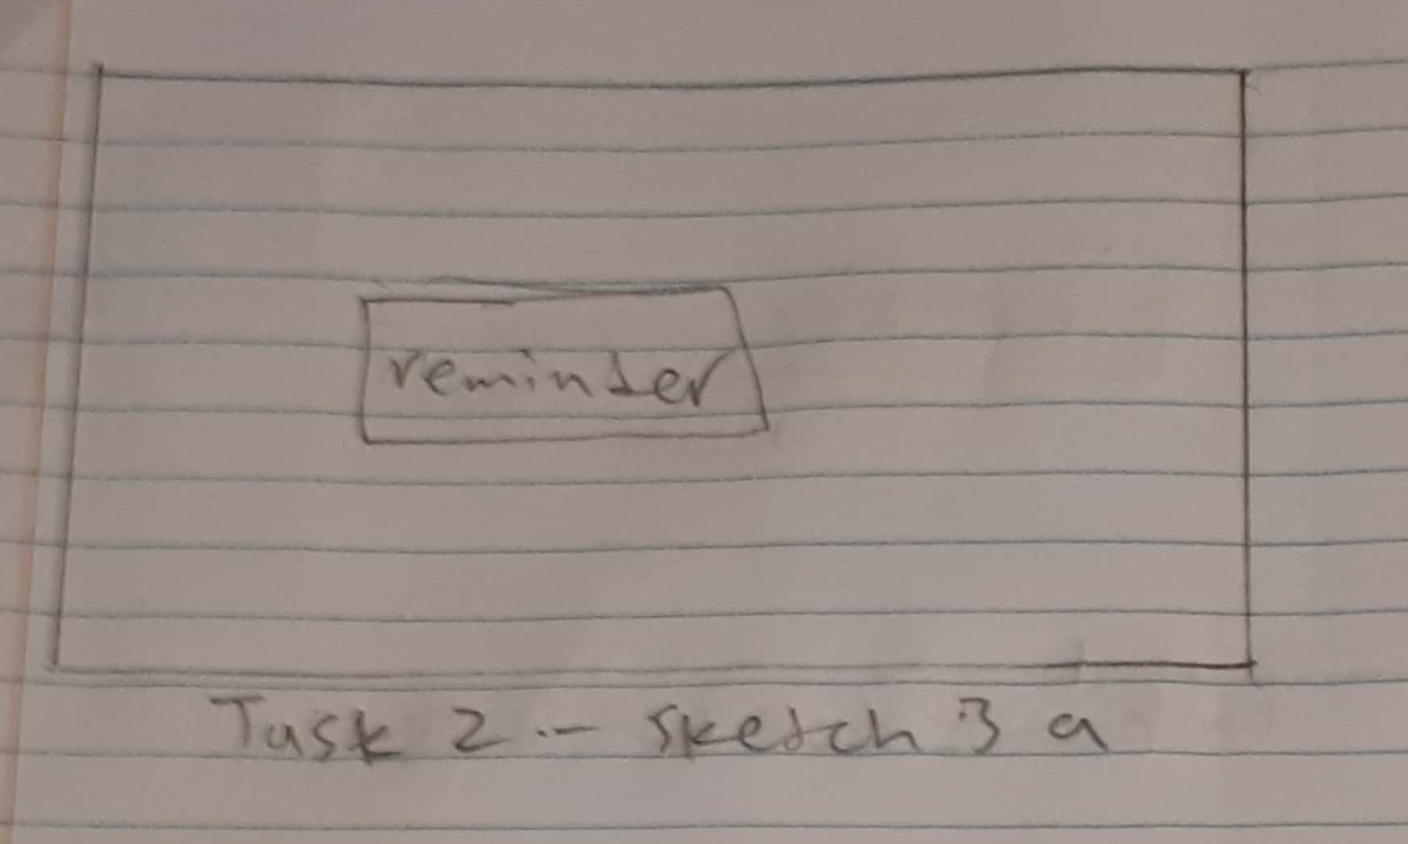 reminder
Task 2 .- sketch 3 a